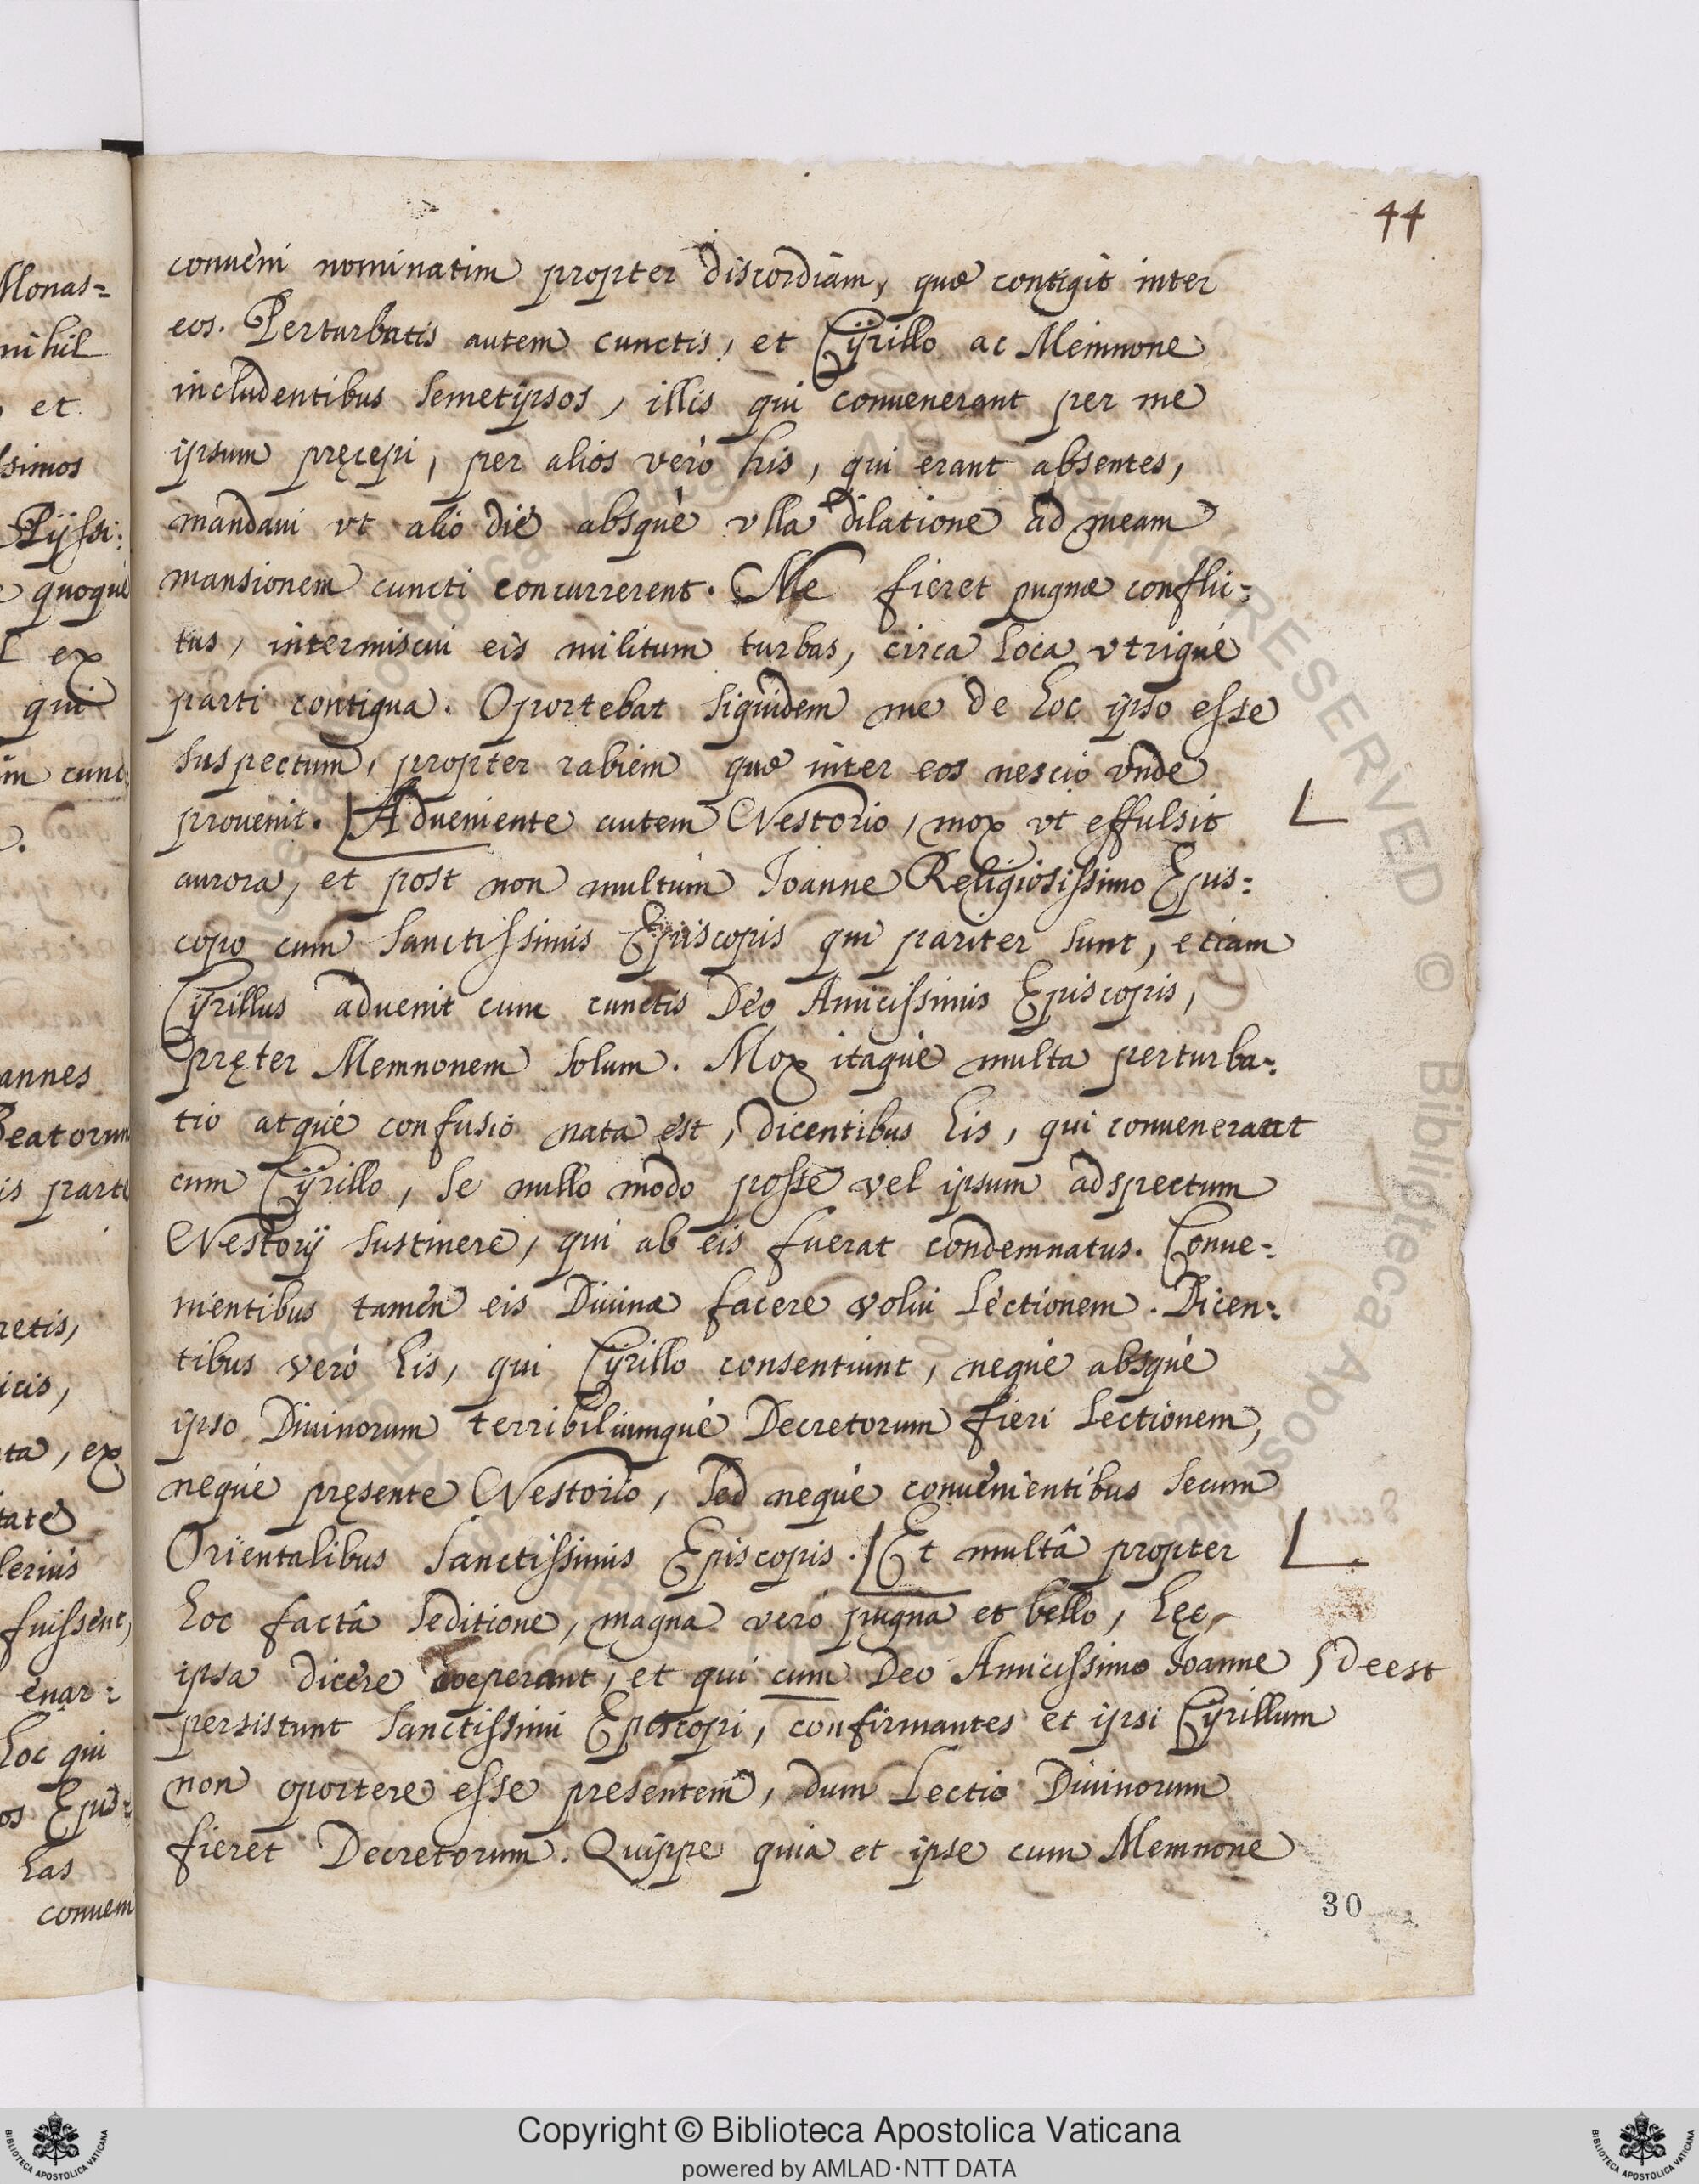 44
conuèni nominatim propter discordiam, quæ contigit inter
eos. Perturbatis autem cunctis, et Cÿrillo ac Memnone
includentibus semetipsos, illis qui conuenerant per me
ipsum pręcepi, per alios verò his, qui erant absentes,
mandaui vt alio die absque vlla dilatione ad meam
mansionem cuncti concurrerent. Ne fieret pugnæ conflic=
tus, intermiscui eis militum turbas, circa loca vtrique
parti contigua. Oportebat siquidem me de hoc ipso esse
suspectum, propter rabiem quæ inter eos nescio vnde
prouenit. Adueniente autem Nestorio, mox vt effulsit
aurora, et post non multùm Joanne Religiosissimo Epis=
copo cum Sanctissimis Episcopis qui pariter sunt, etiam
Cÿrillus aduenit cum cunctis Deo Amicissimis Episcopis,
pręter Memnonem solum. Mox itaque multa perturba=
tio atque confusio nata est, dicentibus his, qui conuenerant
cum Cÿrillo, se nullo modo posse vel ipsum adspectum
Nestorij sustinere, qui ab eis fuerat condemnatus. Conue=
nientibus tamen eis Diuinæ facere volui Lectionem. Dicen=
tibus verò his, qui Cÿrillo consentiunt, neque absque
ipso Diuinorum terribiliumque Decretorum fieri Lectionem,
neque pręsente Nestorio, sed neque conuenientibus secum
Orientalibus Sanctissimis Episcopis. Et multâ propter
hoc factâ seditione, magna verò pugna et bello, hęc
ipsa dicere coeperant, et qui cum Deo Amicissimo Joanne deest
persistunt Sanctissimi Episcopi, confirmantes et ipsi Cÿrillum
non oportere esse presentem, dum Lectio Diuinorum
fieret Decretorum. Quippe quia et ipse cum Memnone
30
Monas=
nihil
et
ssimos
Pijssi:
quoque
ex
qui
cunc=
annes
Beatorum
is parte
retis,
icis,
ta, ex
tate
lerius
fuissent,
enar=
hoc qui
os Epis=
has
conuem
Copyright © Biblioteca Apostolica Vaticana
powered by AMLAD·NTT DATA